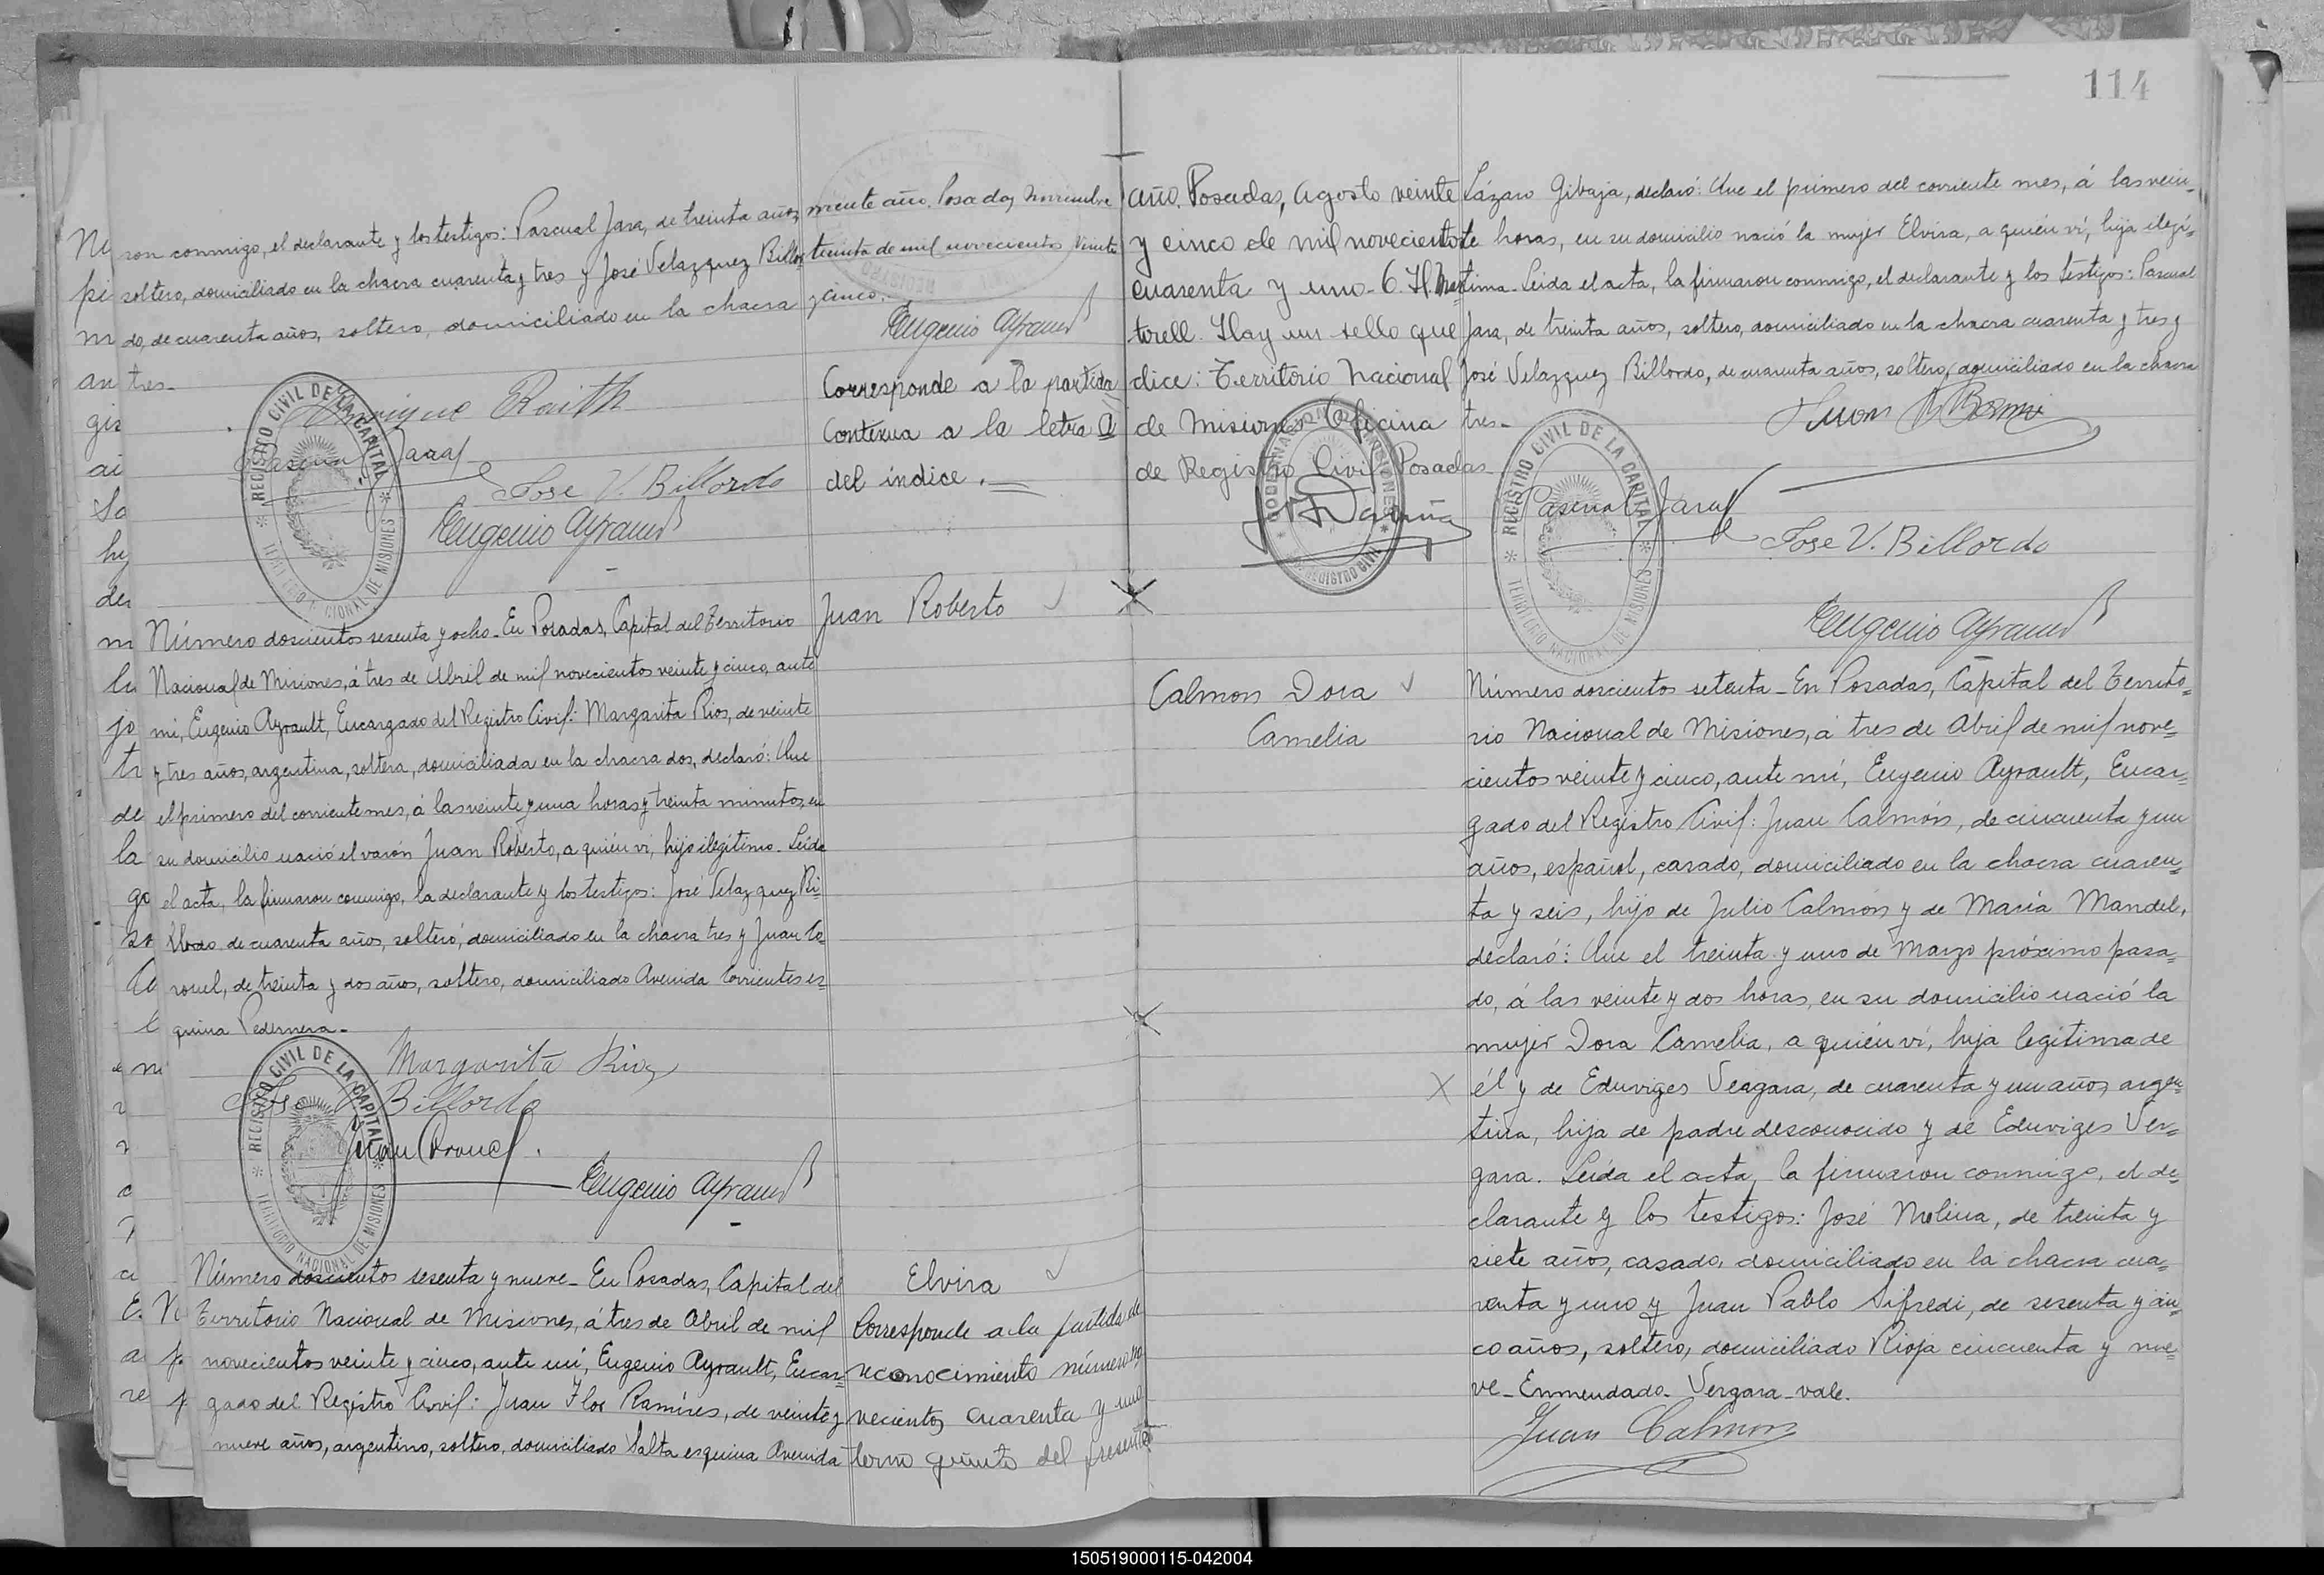 ron conmigo, el declarante y los testigos: Pascual Jara, de treinta años,
soltero, domiciliado en la chacra cuarenta y tres y José Velazquez Billor-
do, de cuarenta años, soltero, domiciliado en la chacra
tres-
Enrique Raith
Pascual Jara
Jose V. Billordo
Eugenio Ayrault
REGISTRO CIVIL DE LA CAPITAL
TERRITORIO NACIONAL DE MISIONES
Número doscientos sesenta y ocho- En Posadas, Capital del Territorio
Nacional de Misiones, á tres de Abril de mil novecientos veinte y cinco, ante
mi, Eugenio Ayrault, Encargado del Registro Civil: Margarita Rios, de veinte
y tres años, argentina, soltera, domiciliada en la chacra dos, declaró: Que
el primero del corriente mes, á las veinte y una horas y treinta minutos, en
su domicilio nació el varón Juan Roberto, a quién ví, hijo ilegítimo. Leída
el acta, la firmaron conmigo, la declarante y los testigos: José Velazquez Bi-
llordo de cuarenta años, soltero, domiciliado en la chacra tres y Juan Co-
ronel, de treinta y dos años, soltero, domiciliado Avenida Corrientes es-
quina Pedernera-
Margarita Rios
Jose V. Billordo
Juan Coronel.
Eugenio Ayrault
REGISTRO CIVIL DE LA CAPITAL
TERRITORIO NACIONAL DE MISIONES
Número doscientos sesenta y nueve- En Posadas, Capital del
Territorio Nacional de Misiones, á tres de Abril de mil
novecientos veinte y cinco, ante mí, Eugenio Ayrault, Encar-
gado del Registro Civil: Juan Flor Ramíres, de veinte y
nueve años, argentino, soltero, domiciliado Salta esquina Avenida
mente año. Posadas, Noviembre
treinta de mil novecientos veinte
y cinco.
Eugenio Ayrault
Corresponde a la partida
Contexua a la letra A
del indice.
Juan Roberto
Elvira
Corresponde a la partida de
reconocimiento número no-
vecientos cuarenta y uno
tomo quinto del presente
114
año. Posadas, Agosto veinte
y cinco de mil novecientos
cuarenta y uno- C. H. Mar-
torell. Hay un sello que
dice: Territorio Nacional
de Misiones Oficina
de Registro Civil Posadas
GOBERNACION MISIONES
REGISTRO CIVIL
Calmon Dora
Camelia
Lázaro Gibaja, declaró: Que el primero del corriente mes, á las vein-
te horas, en su domicilio nació la mujer Elvira, a quién ví, hija ilegí-
tima- Leída el acta, la firmaron conmigo, el declarante y los testigos: Pascual
Jara, de treinta años, soltero, domiciliado en la chacra cuarenta y tres y
José Velazquez Billordo, de cuarenta años, soltero, domiciliado en la chacra
tres-
Pascual Jara
Jose V. Billordo
Eugenio Ayrault
REGISTRO CIVIL DE LA CAPITAL
TERRITORIO NACIONAL DE MISIONES
Número doscientos setenta- En Posadas, Capital del Territo-
rio Nacional de Misiones, á tres de Abril de mil nove-
cientos veinte y cinco, ante mí, Eugenio Ayrault, Encar-
gado del Registro Civil: Juan Calmón, de cincuenta y un
años, español, casado, domiciliado en la chacra cuaren-
ta y seis, hijo de Julio Calmon y de María Mandel,
declaró: Que el treinta y uno de Marzo próximo pasa-
do, á las veinte y dos horas, en su domicilio nació la
mujer Dora Camelia, a quién ví, hija legítima de
él y de Eduviges Vergara, de cuarenta y un años, argen-
tina, hija de padre desconocido y de Eduviges Ver-
gara. Leída el acta, la firmaron conmigo, el de-
clarante y los testigos: José Molina, de treinta y
siete años, casado, domiciliado en la chacra cua-
renta y uno y Juan Pablo Sifredi, de sesenta y cin-
co años, soltero, domiciliado Rioja cincuenta y nue-
ve- Enmendado- Vergara- vale.
Juan Calmon
150519000115-042004